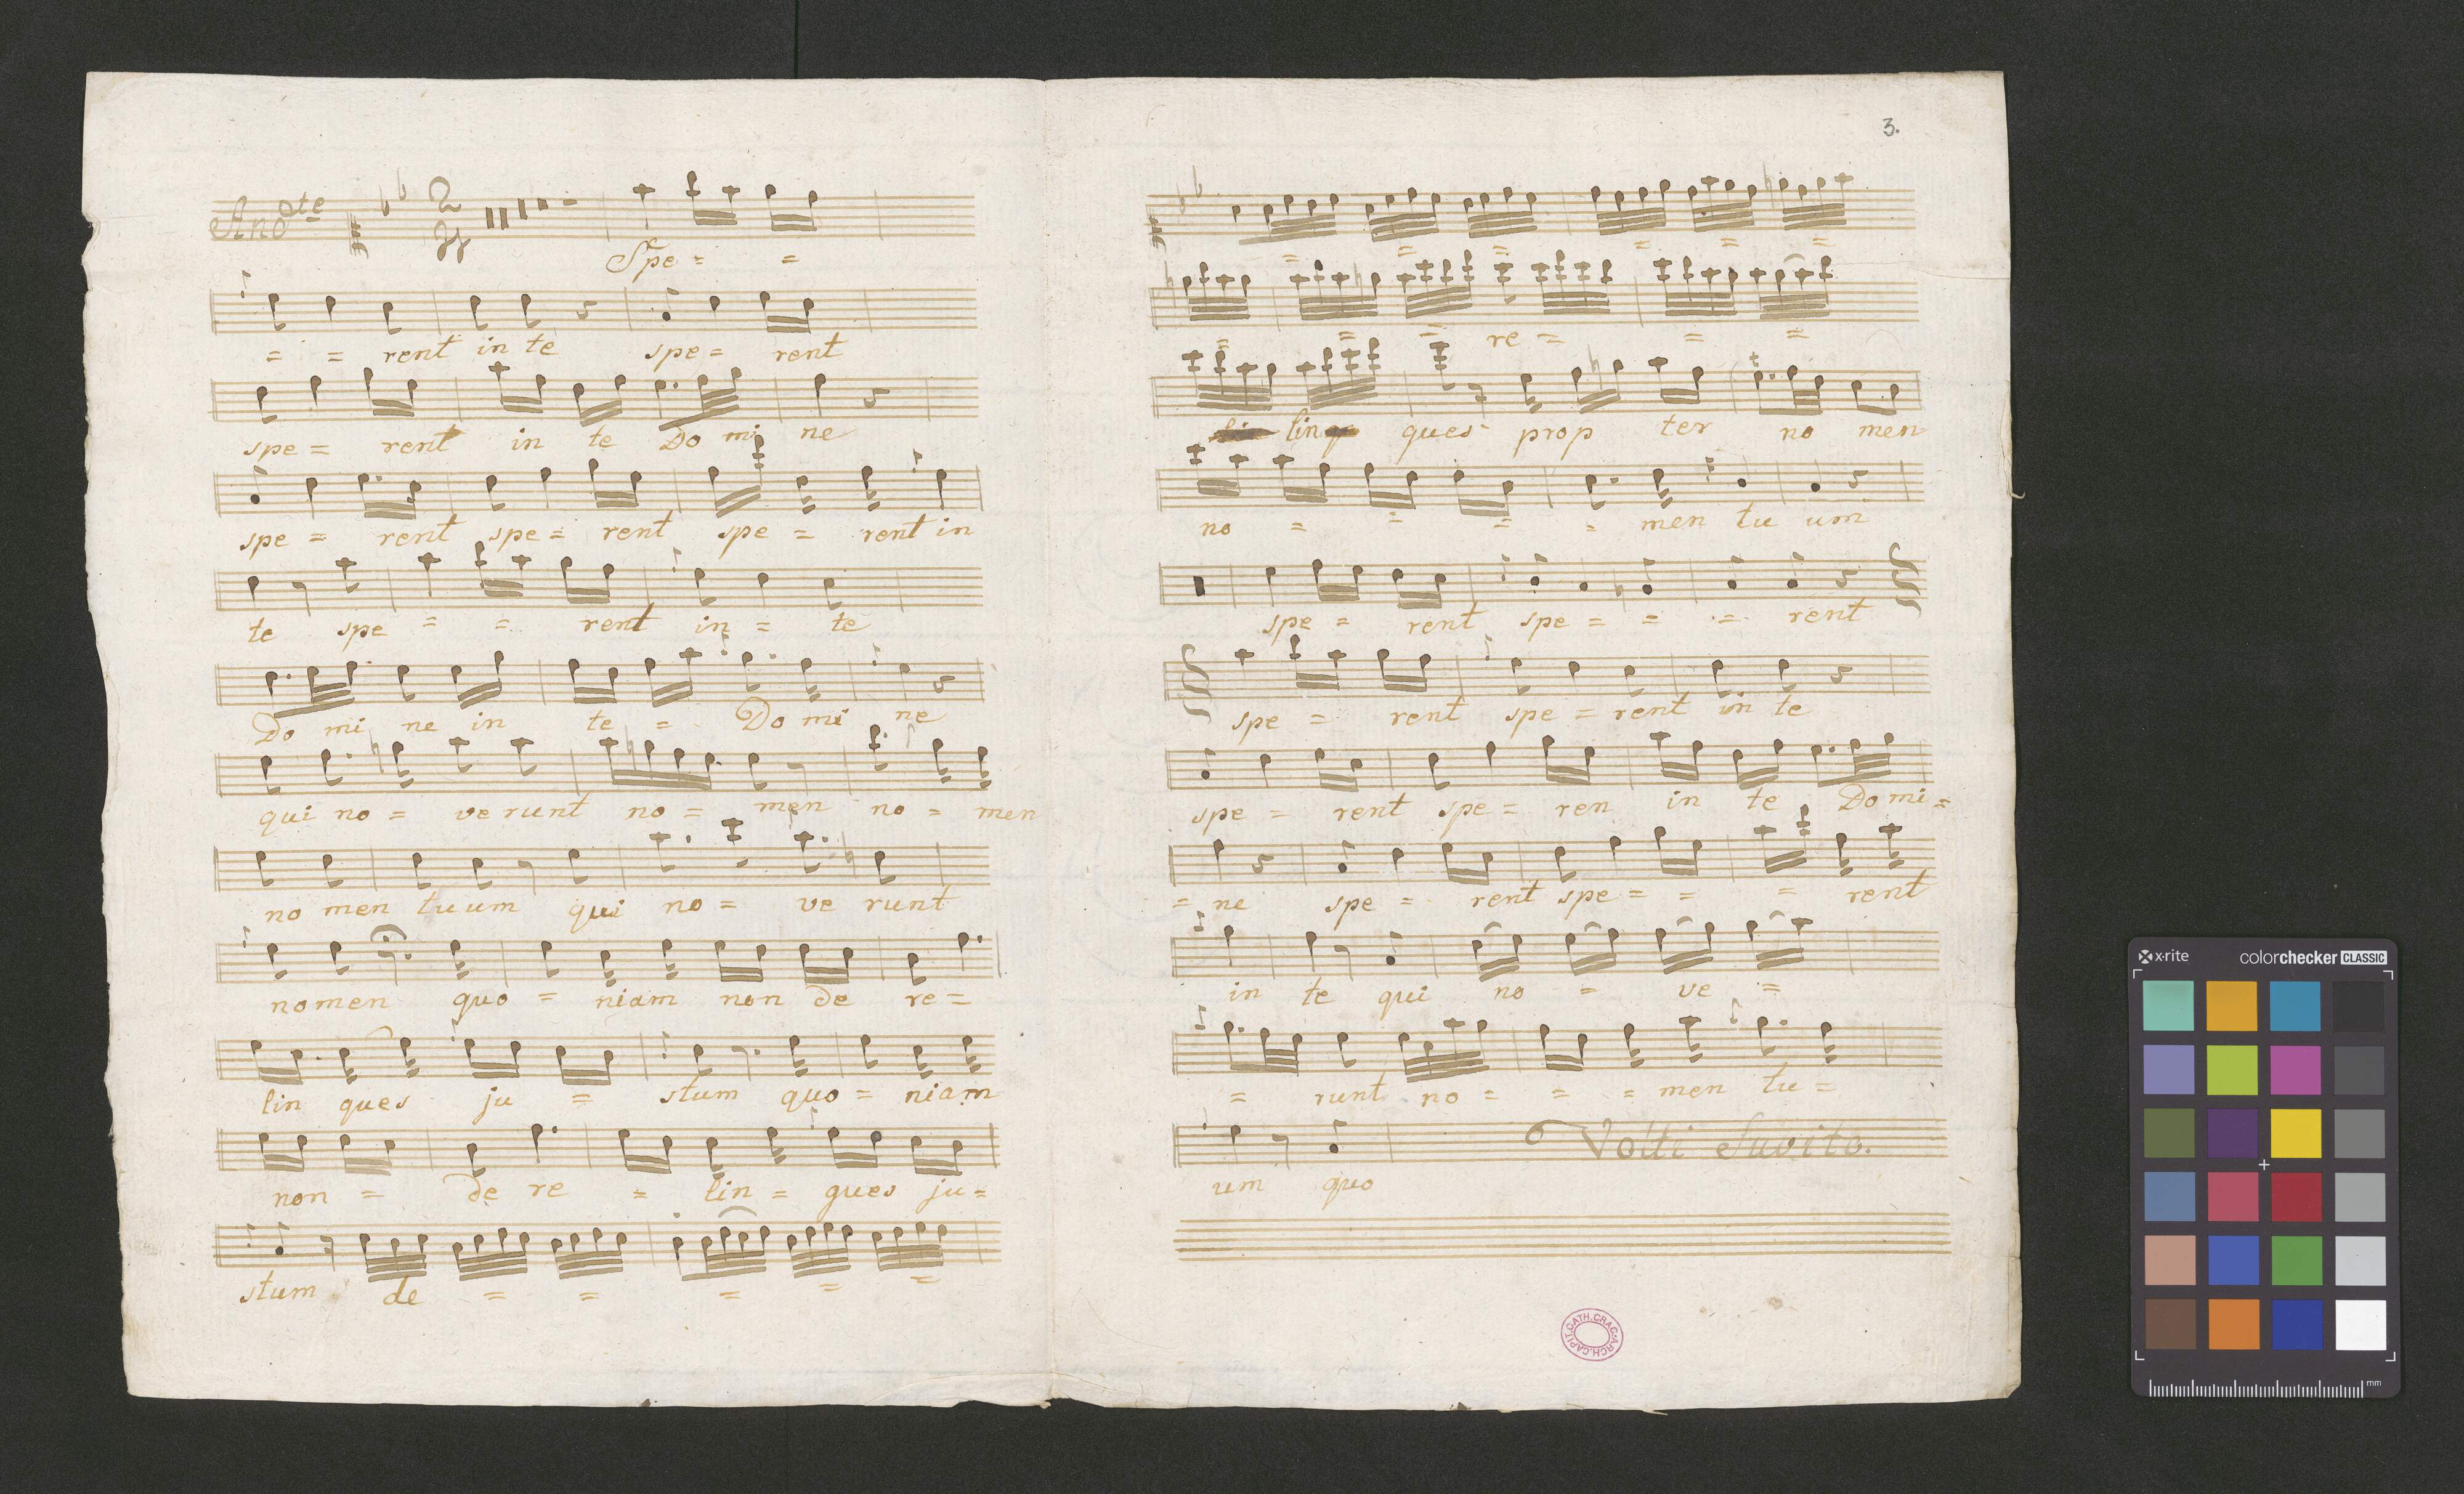 Andte 2 4
Spe = =
= = rent in te spe = rent
spe = rent in te Do mi ne
spe = rent spe = rent spe = rent in
te spe = = rent in = te
Do mi ne in te = Do mi ne
qui no = ve runt no = men no = men
no men tu um qui no = ve runt
no men quo = niam non de re =
lin ques ju = stum quo = niam
non = de re = lin = ques ju =
stum de = = = = =
3.
= = = = = =
= = = re = = =
lin ques prop ter no men
no = = = = men tu um
spe = rent spe = = = rent
spe = rent spe = rent in te
spe = rent spe = ren in te Do mi =
= ne spe = rent spe = = = rent
in te qui no = ve =
= runt no = = = men tu =
Volti Suvito.
um quo
ARCH.CAPIT.CATH.CRAC.
x·rite colorchecker CLASSIC
mm